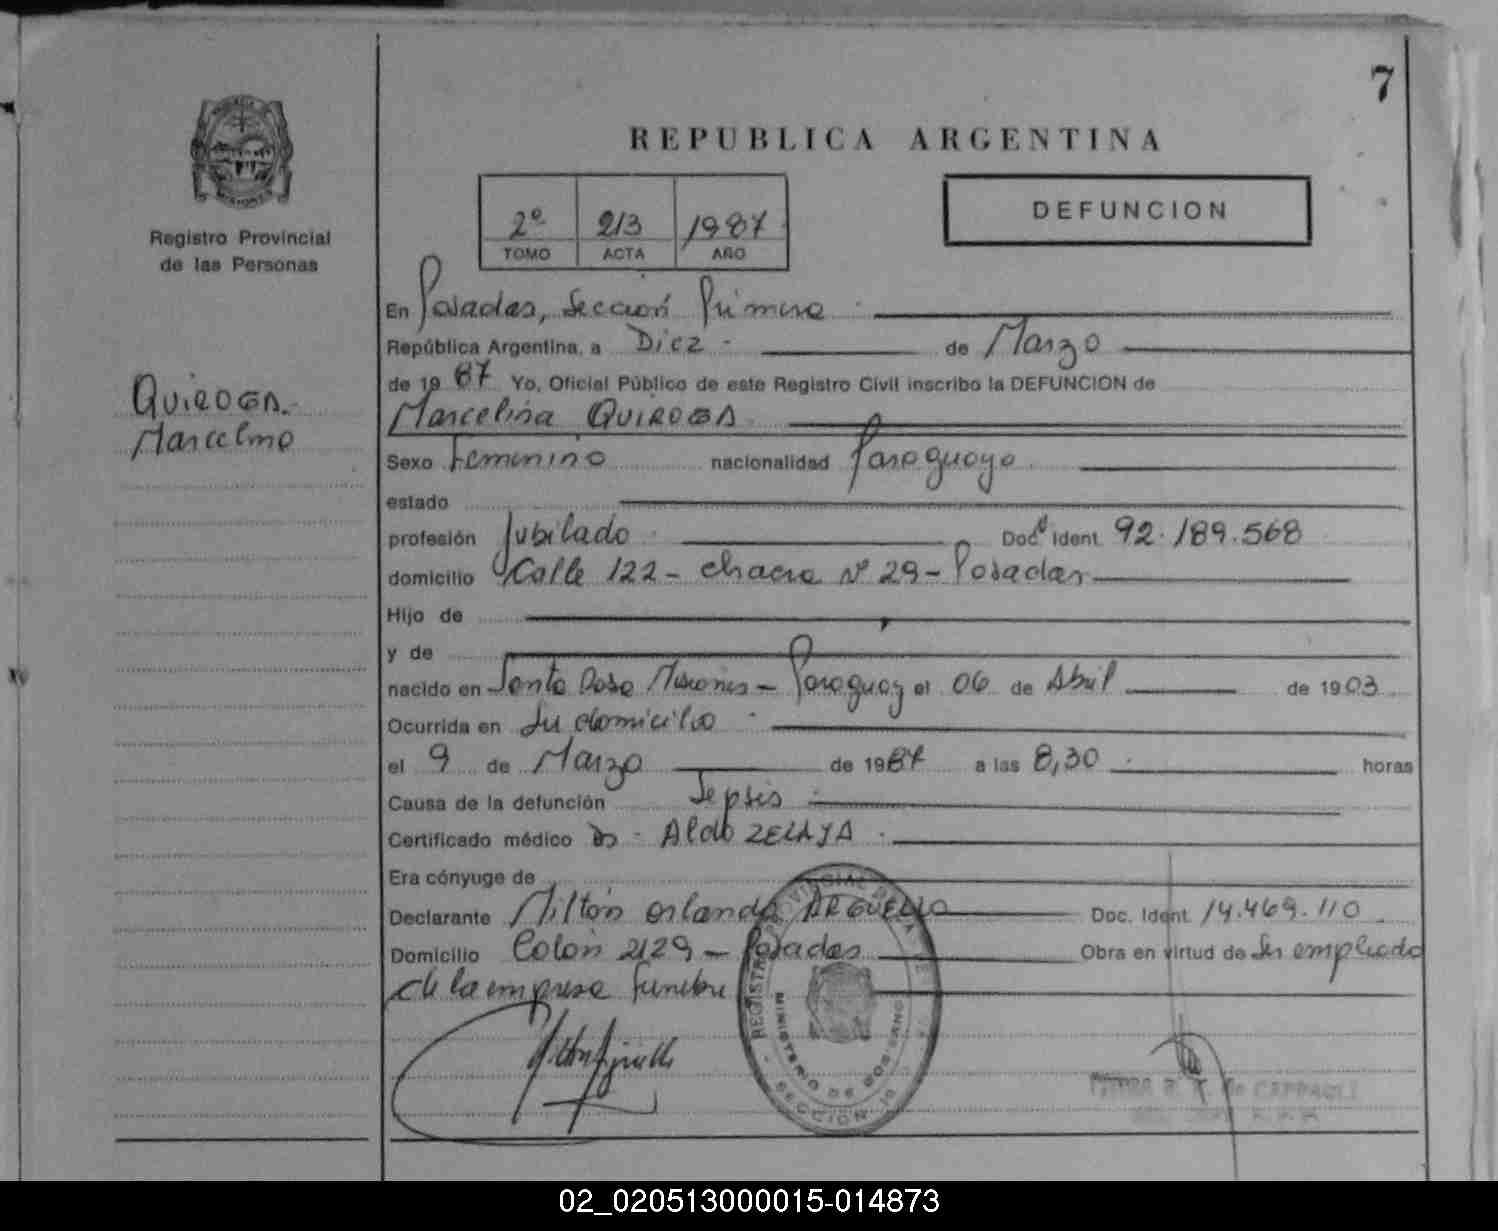 7
REPUBLICA ARGENTINA
2º 213 1987
TOMO ACTA AÑO
DEFUNCION
Registro Provincial
de las Personas
QUIROGA.
Marcelina
En Posadas, Sección Primera
República Argentina, a Diez de Marzo
de 1987 Yo, Oficial Público de este Registro Civil inscribo la DEFUNCION de
Marcelina QUIROGA
Sexo Femenino nacionalidad Paraguaya
estado
profesión Jubilado Doc. Ident. 92.189.568
domicilio Calle 122 - chacra Nº 29 - Posadas
Hijo de
y de
nacido en Santa Rosa Misiones - Paraguay el 06 de Abril de 1903
Ocurrida en Su domicilio
el 9 de Marzo de 1987 a las 8,30 horas
Causa de la defunción Sepsis
Certificado médico Dr. Aldo ZELAYA
Era cónyuge de
Declarante Milton Orlando ARGUELLO Doc. Ident. 14.469.110
Domicilio Colón 2129 - Posadas Obra en virtud de Ser empleado
de la empresa funebre
REGISTRO PROVINCIAL DE LAS
MINISTERIO DE GOBIERNO
SECCION 1a
de CAPPAOLI
02_020513000015-014873